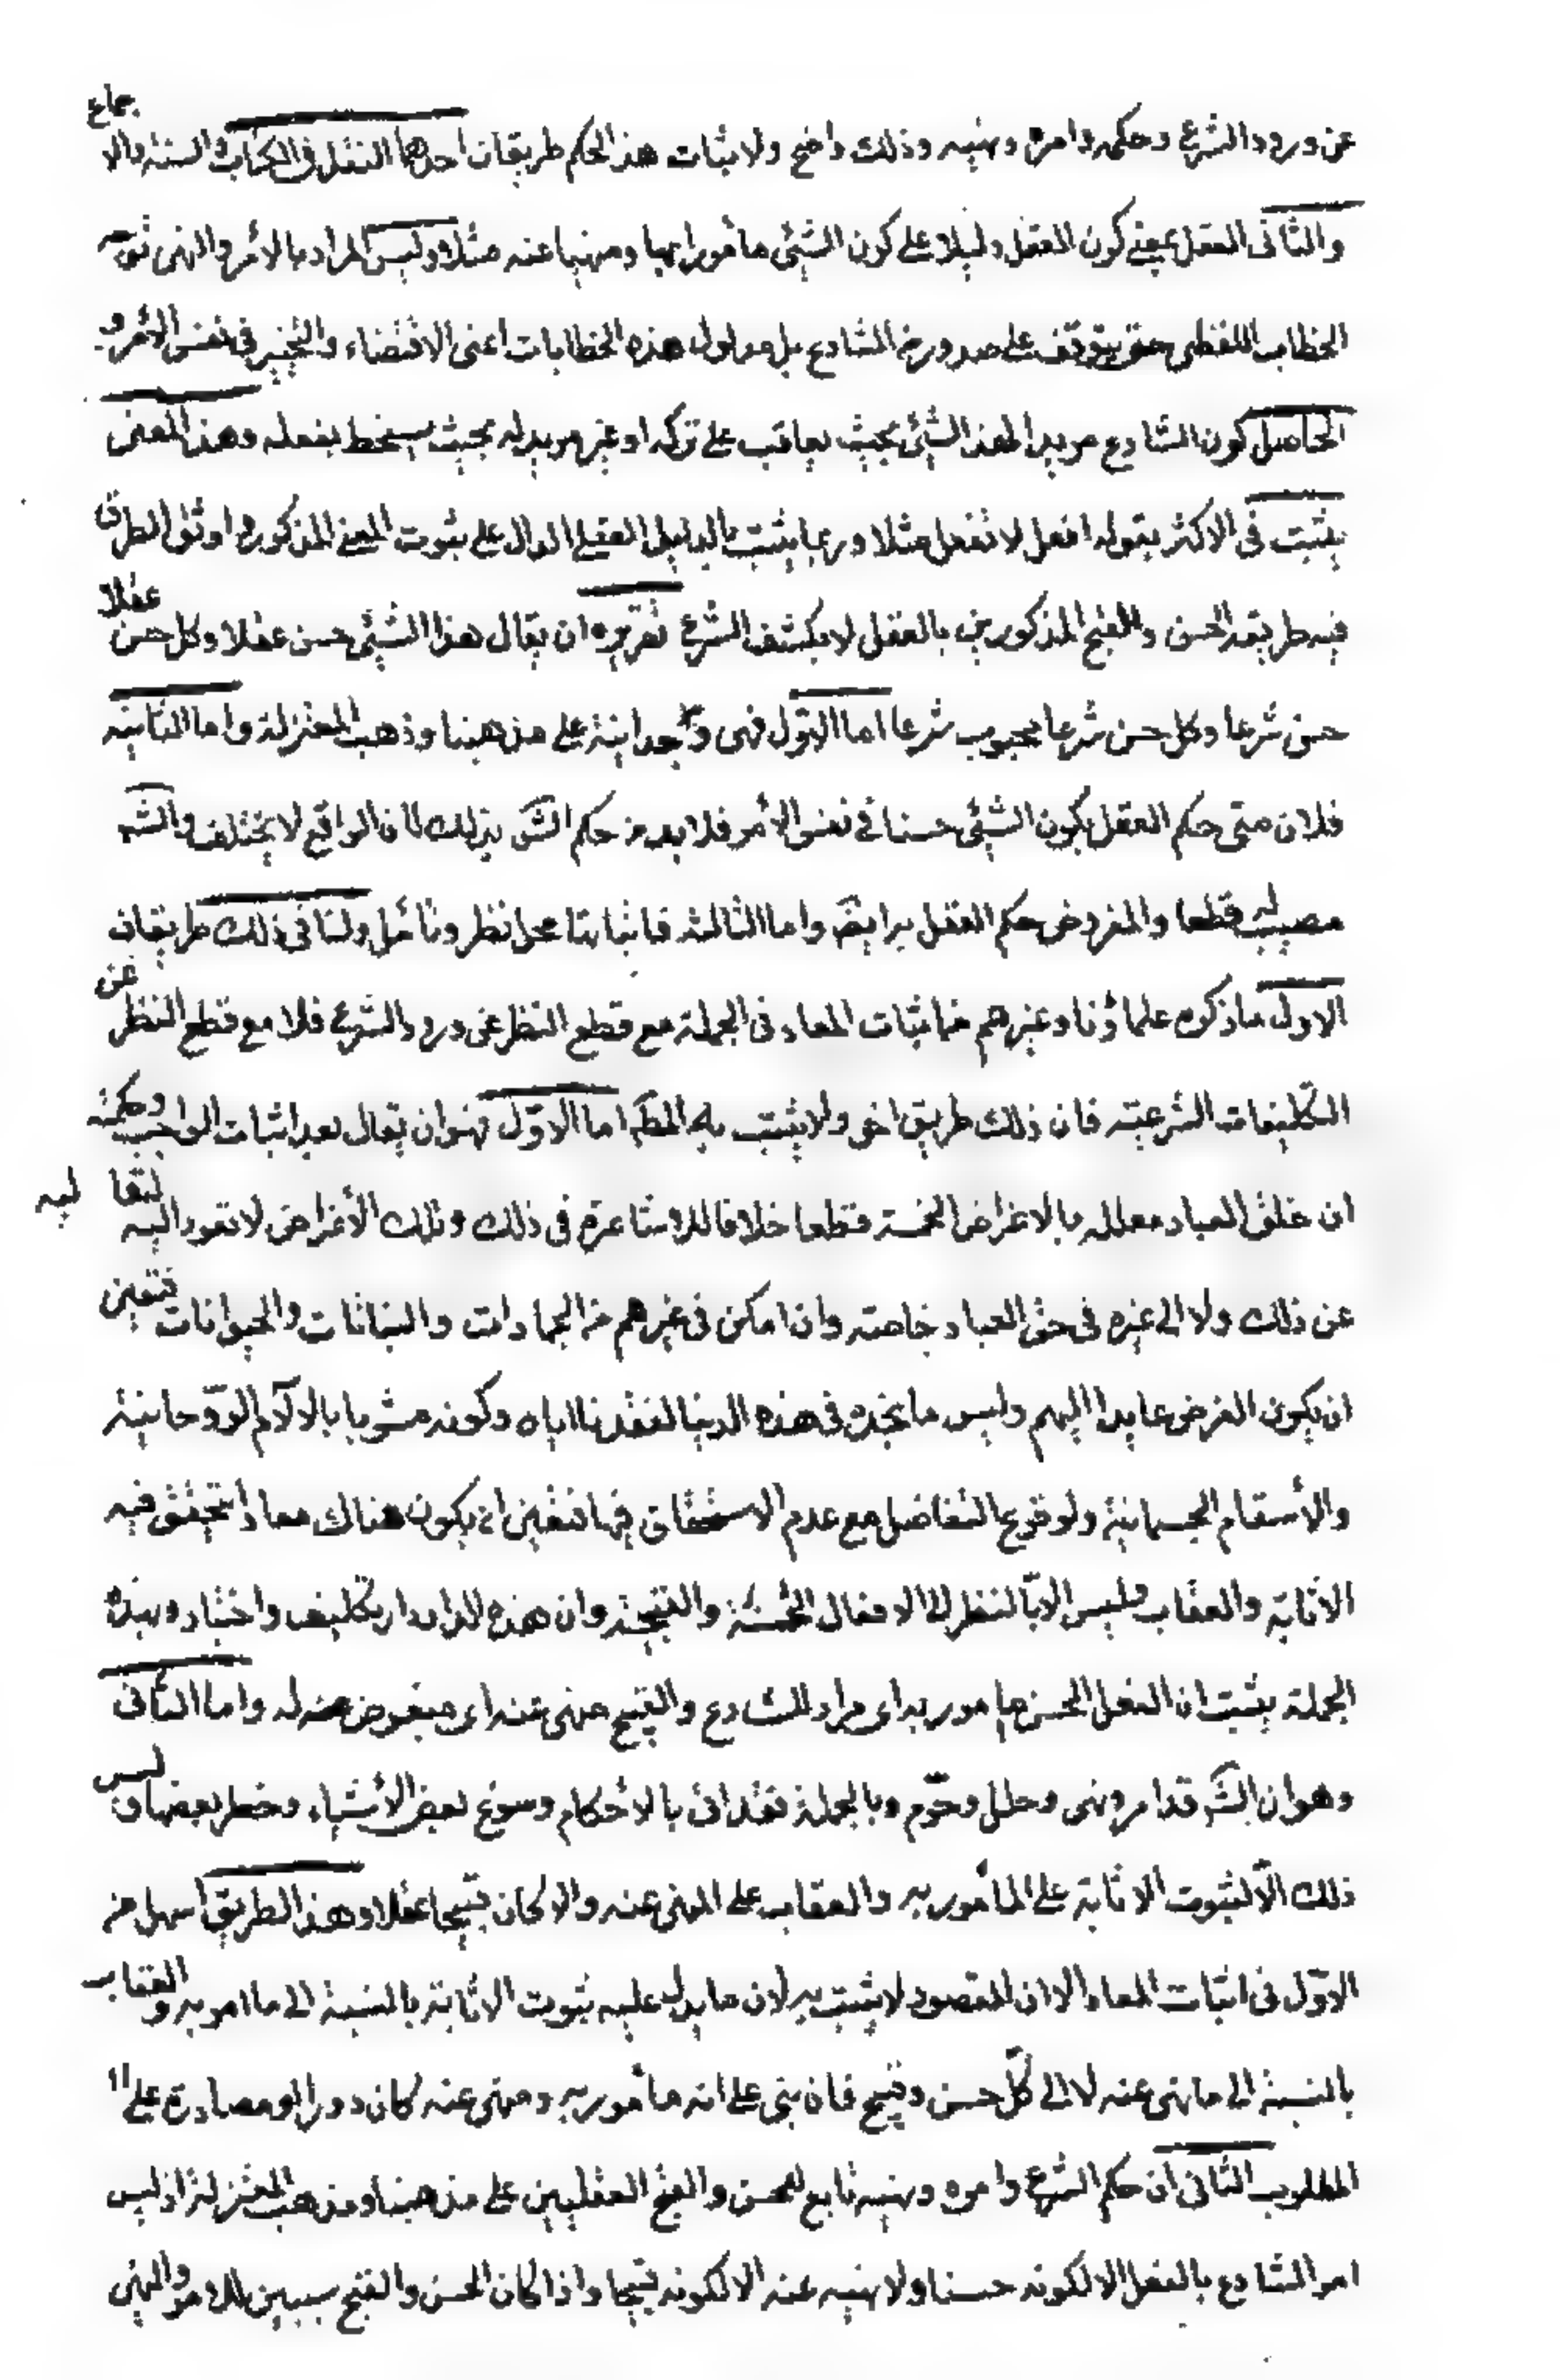 عن ورود الشرع وحكمه وامره ونهيه وذلك واضح ولاثبات هذا الحكم طريقان احدهما النقل في الكتاب والسنة والاجماع
والثاني العقل بمعنى كون العقل دليلا على كون الشئ مأمورا بها ومنهيا عنه مثلا وليس المراد بالأمر والنهى
الخطاب اللفظى حتى يتوقف على صدوره من الشارع بل مدلول هذه الخطابات اعنى الاقتضاء والتخيير في نفس الأمر و
الحاصل كون الشارع مريدا لهذا الشئ بحيث يعاقب على تركه او غير مريد له بحيث يسخط بفعله وهذا المعنى
يثبت في الاكثر بقوله افعل لا تفعل مثلا وربما يثبت بالدليل العقلي الدال على ثبوت المعنى المذكور واوثق الطرق
فيه طريقة الحسن والقبح المذكورين بالعقل لا بكشف الشرع تقريره ان يقال هذا الشئ حسن عقلا وكل حسن عقلا
حسن شرعا وكل حسن شرعا محبوب شرعا اما الاول فهى وجدانية على مذهبنا ومذهب المعتزلة واما الثانية
فلان متى حكم العقل بكون الشئ حسنا في نفس الأمر فلا بد من حكم الشرع بذلك لان الواقع لا يختلف والشرع
مصيب له قطعا والمفروض حكم العقل به ايضا واما الثالثة فاثباتها محل نظر وتأمل ولنا في ذلك طريقان
الاول ما ذكره علماؤنا وغيرهم من اثبات المعاد في الجملة مع قطع النظر عن ورود الشرع فلا مع قطع النظر عن
التكليفات الشرعية فان ذلك طريق اخر ولا يثبت به المط اما الاول فهو ان يقال بعد اثبات الواجب وحكمته
ان خلق العباد معلله بالاغراض الحسنة قطعا خلافا للاشاعرة في ذلك وتلك الأغراض لا تعود اليه لتعاليه
عن ذلك ولا الى غيره في حق العباد خاصة وان امكن في غيرهم من الجمادات والنباتات والحيوانات فتعين
ان يكون الغرض عايدا اليهم وليس ما نجده في هذه الدنيا لفقدنا اياه وكونه مشوبا بالالآم الروحانية
والأسقام الجسمانية ولوقوع التفاضل مع عدم الاستحقاق فيها فتعين ان يكون هناك معاد يتحقق فيه
الاثابة والعقاب وليس الا بالنظر الى الافعال الحسنة والقبيحة وان هذه الدار دار تكليف واختبار وبهذه
الجملة يثبت ان الفعل الحسن مأمور به اى مراد للشارع والقبيح منهى عنه اى مبغوض عنه له واما الثاني
وهو ان الشرع قد امر ونهى وحلل وحرم وبالجملة فقد اتى بالاحكام وسوغ بعض الأشياء وحظر بعضها وليس
ذلك الا لثبوت الاثابة على المأمور به والعقاب على المنهى عنه والا لكان قبيحا عقلا وهذا الطريق اسهل من
الاول في اثبات المعاد الا ان المقصود لا يثبت به لان ما يدل عليه ثبوت الاثابة بالنسبة الى ما امر به والعقاب
بالنسبة الى ما نهى عنه لا الى كل حسن وقبيح فان بنى على انه مأمور به ومنهى عنه كان دورا او مصادرة على
المطلوب الثاني ان حكم الشرع وامره ونهيه تابع للحسن والقبح العقليين على مذهبنا ومذهب المعتزلة اذ ليس
امر الشارع بالفعل الا لكونه حسنا ولا نهيه عنه الا لكونه قبيحا واذا كان الحسن والقبح سببين للامر والنهي